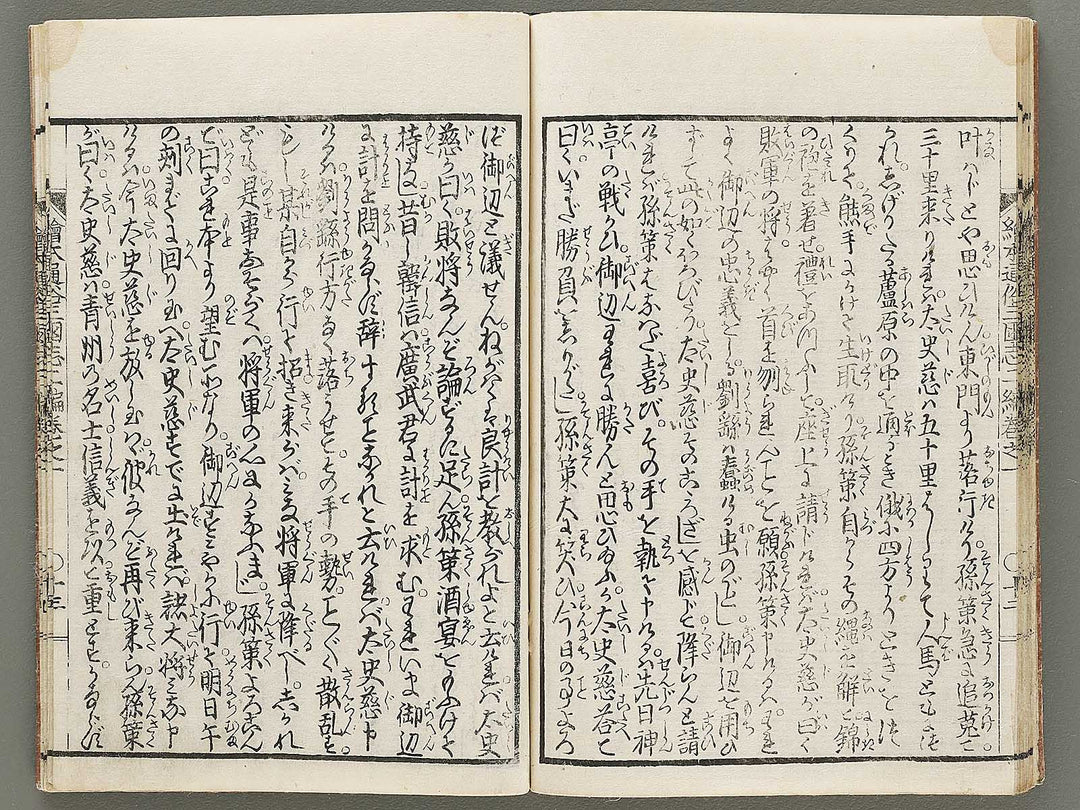 叶はじとや思ひけん東門より落行けり孫策急に追蒐て
三十里来りければ太史慈は五十里はしりて人馬ともにつ
かれしげりたる蘆原の中を通るとき俄に四方よりときをつ
くりて熊手にかけて生取けり孫策自からその縄を解て錦
の袍を着せ礼をあつふして座上に請じければ太史慈が曰く
敗軍の将はやく首を刎られんことを願孫策申けるはわれ
よく御辺の忠義をしる劉繇は蠢ける虫のごとし御辺を用ひ
ずして此の如くやぶれたり太史慈そのこゝろざしを感じ降らんと請
ければ孫策はなはだ喜びその手を執て申けるは先日神
亭の戦ひ御辺われに勝んと思ひ玉ふか太史慈答て
曰くいまだ勝負しりがたし孫策大に笑ひ今日の事よろ
ず御辺と議せんねがはくは良計を教られよと云ければ太史
慈が曰く敗将なんぞ論ずるに足ん孫策酒宴をまふけて
待は昔し韓信は広武君に計を求むわれいま御辺
に計を問かならず辞することなかれと云ければ太史慈申
けるは劉繇行方なく落うせてその手の勢ことごとく散乱す
もし某自から行て招き来らばみな将軍に降べししかれ
ども是事おそらくは将軍の心にかなふまじ孫策よろこん
で曰これ本より望む所なり御辺すみやかに行て明日午
の刻までに回り玉へ太史慈すでに出ければ諸大将みな申
けるは今太史慈を放し玉はゞ彼なんぞ再び来らん孫策
が曰く太史慈は青州の名士信義を以て重とすかならず
絵本通俗三国志二編巻之一
十二
絵本通俗三国志二編巻之一
十三